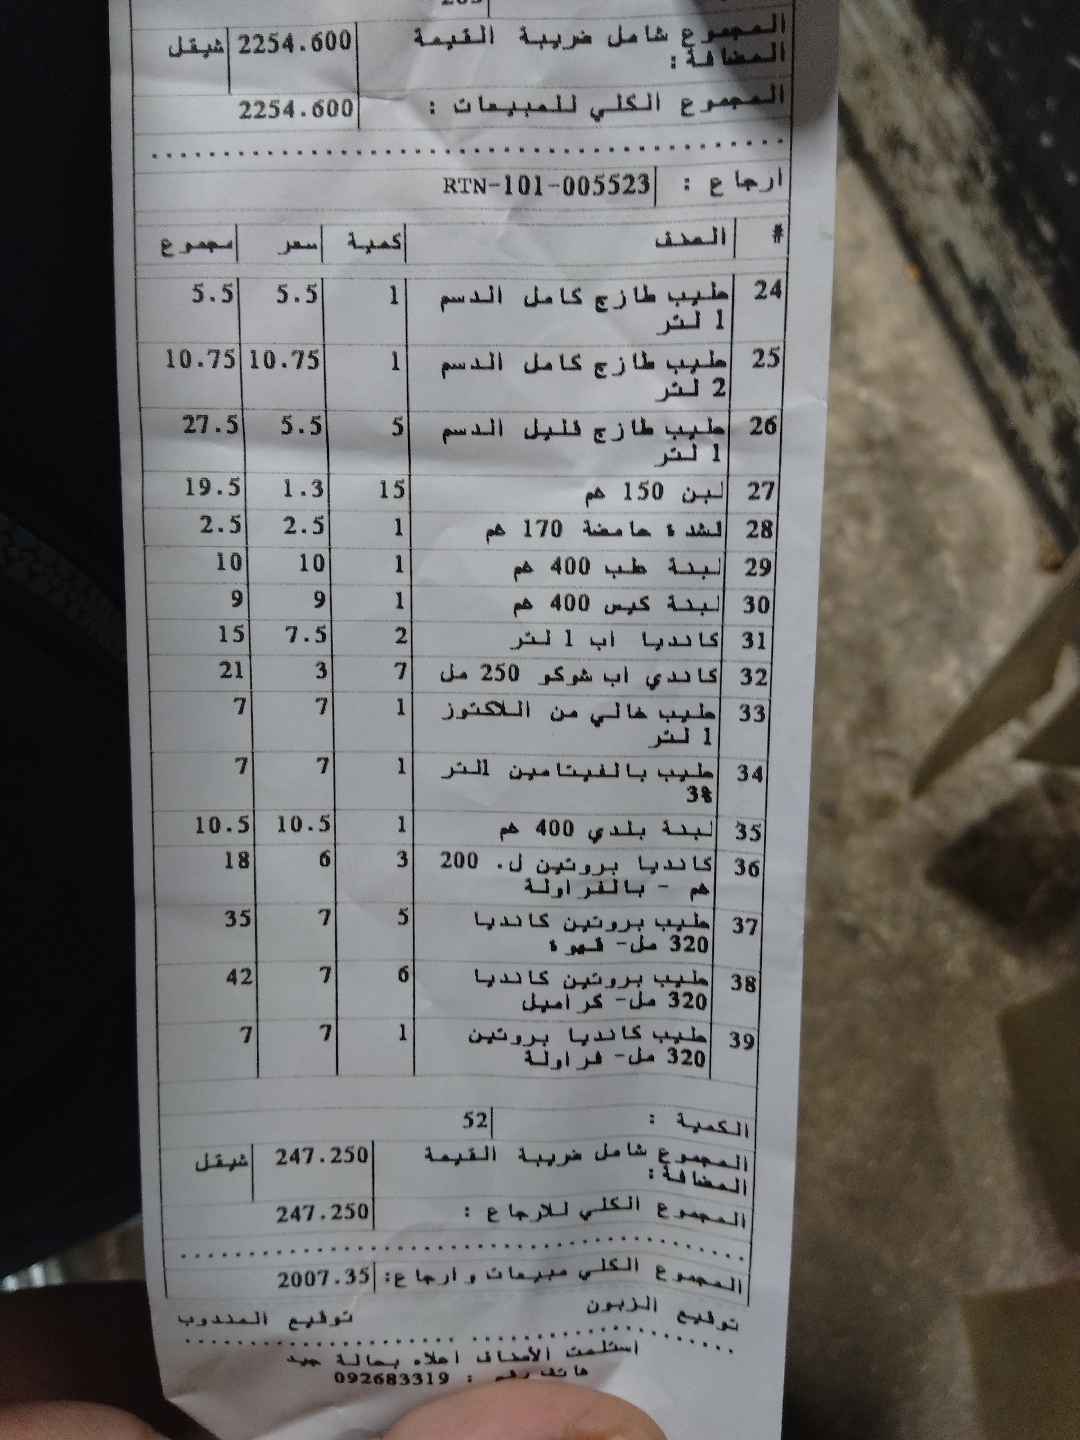 المجموع شامل ضريبة القيمة | 2254.600 | شيقل
المضافة:
المجموع الكلي للمبيعات : | 2254.600
ارجاع : | RTN-101-005523
# | الصنف | كمية | سعر | مجموع
24 | حليب طازج كامل الدسم | 1 | 5.5 | 5.5
1 لتر
25 | حليب طازج كامل الدسم | 1 | 10.75 | 10.75
2 لتر
26 | حليب طازج قليل الدسم | 5 | 5.5 | 27.5
1 لتر
27 | لبن 150 غم | 15 | 1.3 | 19.5
28 | قشدة حامضة 170 غم | 1 | 2.5 | 2.5
29 | لبنة علب 400 غم | 1 | 10 | 10
30 | لبنة كيس 400 غم | 1 | 9 | 9
31 | كانديا اب 1 لتر | 2 | 7.5 | 15
32 | كاندي اب شوكو 250 مل | 7 | 3 | 21
33 | حليب خالي من اللاكتوز | 1 | 7 | 7
1 لتر
34 | حليب بالفيتامين 1لتر | 1 | 7 | 7
3%
35 | لبنة بلدي 400 غم | 1 | 10.5 | 10.5
36 | كانديا بروتين ل. 200 | 3 | 6 | 18
غم - بالفراولة
37 | حليب بروتين كانديا | 5 | 7 | 35
320 مل- قهوة
38 | حليب بروتين كانديا | 6 | 7 | 42
320 مل- كراميل
39 | حليب كانديا بروتين | 1 | 7 | 7
320 مل- فراولة
الكمية : | 52
المجموع شامل ضريبة القيمة | 247.250 | شيقل
المضافة:
المجموع الكلي للارجاع : | 247.250
المجموع الكلي مبيعات وارجاع: | 2007.35
توقيع الزبون توقيع المندوب
استلمت الأصناف اعلاه بحالة جيد
هاتف رقم : 092683319